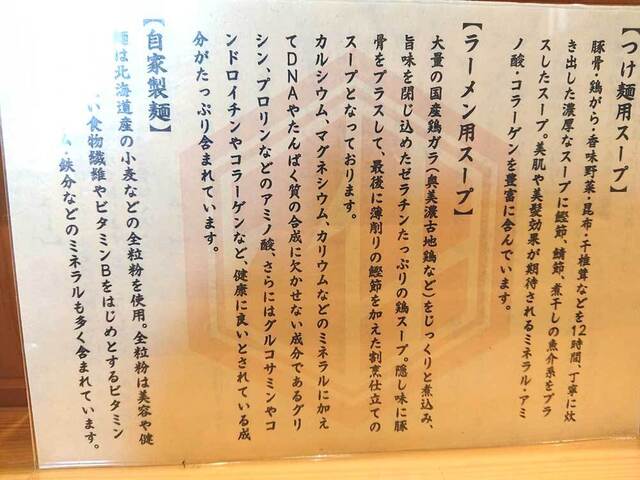 【つけ麺用スープ】
豚骨・鶏がら・香味野菜・昆布・干椎茸などを12時間、丁寧に炊
き出した濃厚なスープに鰹節、鯖節、煮干しの魚介系をプラ
スしたスープ。美肌や美髪効果が期待されるミネラル・アミ
ノ酸・コラーゲンを豊富に含んでいます。
【ラーメン用スープ】
大量の国産鶏ガラ(奥美濃古地鶏など)をじっくりと煮込み、
旨味を閉じ込めたゼラチンたっぷりの鶏スープ。隠し味に豚
骨をプラスして、最後に薄削りの鰹節を加えた割烹仕立ての
スープとなっております。
カルシウム、マグネシウム、カリウムなどのミネラルに加え
てDNAやたんぱく質の合成に欠かせない成分であるグリ
シン、プロリンなどのアミノ酸、さらにはグルコサミンやコ
ンドロイチンやコラーゲンなど、健康に良いとされている成
分がたっぷり含まれています。
【自家製麺】
麺は北海道産の小麦などの全粒粉を使用。全粒粉は美容や健
い食物繊維やビタミンBをはじめとするビタミン
ム・鉄分などのミネラルも多く含まれています。